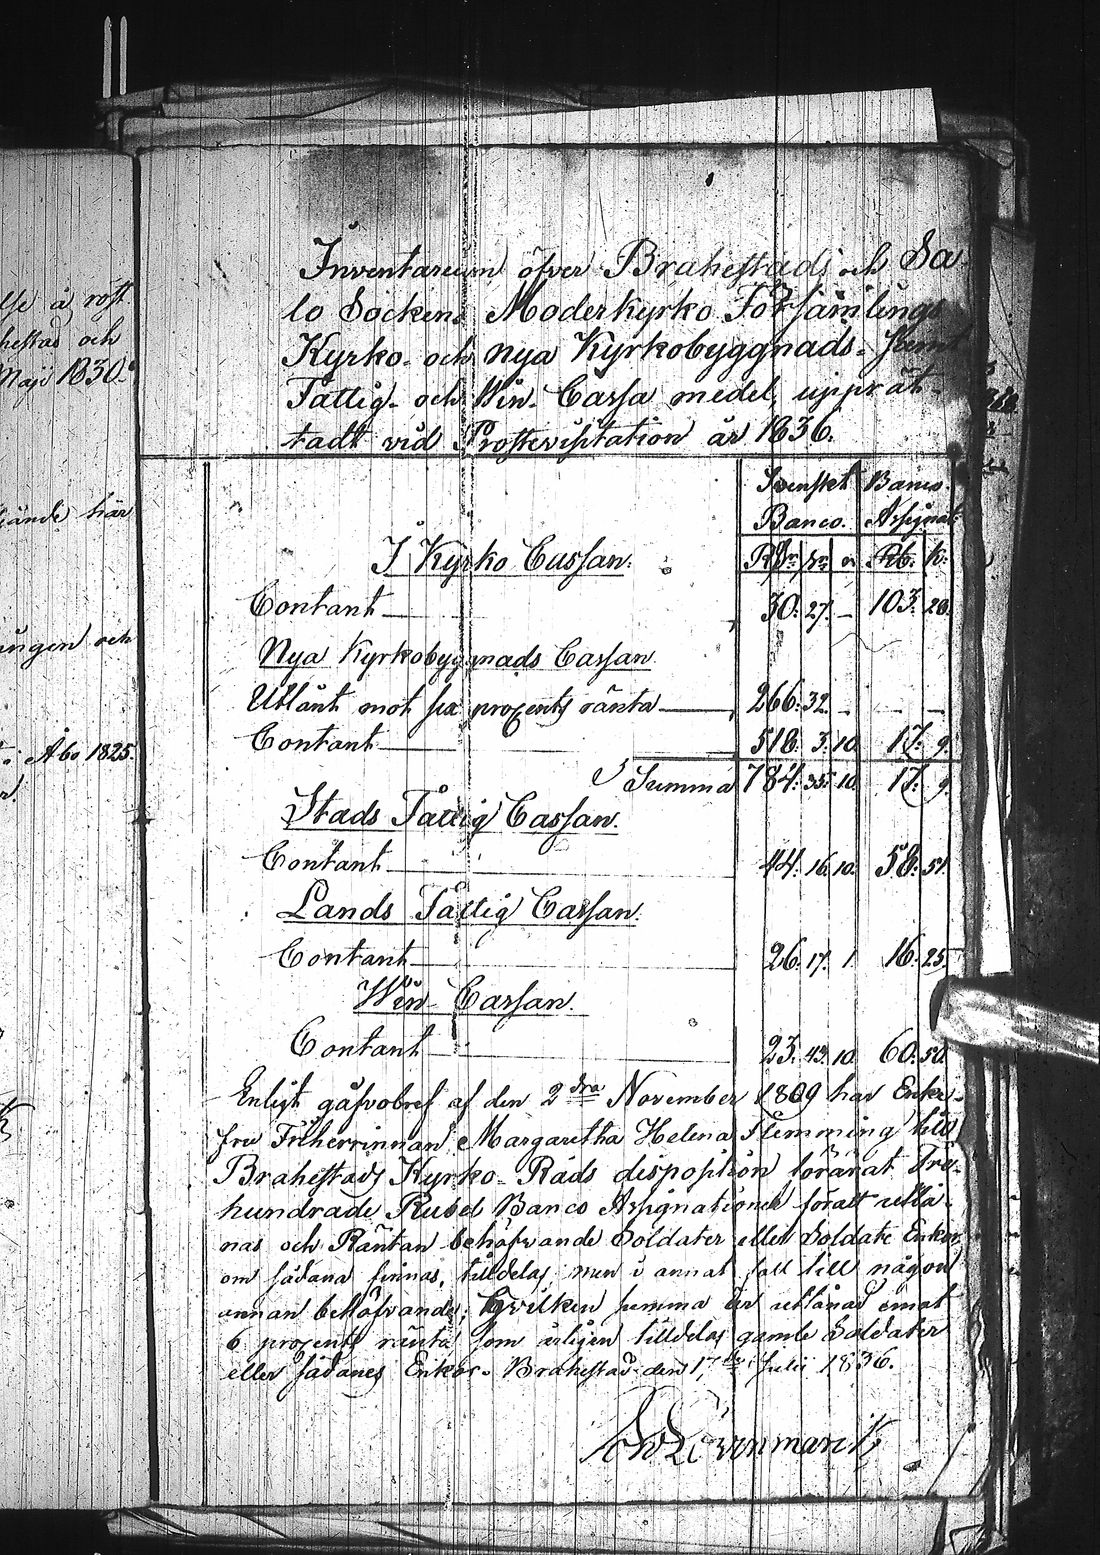 lse å rost
hestad och
Maji 1830.
jände här
ungen och
i Åbo 1825.
Inventarium öfver Brahestads och Sa-
lo Sockens Moderkyrko Församlings
Kyrko- och nya Kyrkobyggnads- samt
Fattig- och Win- Cassa medel, upprät-
tadt vid Prostevisitation år 1836.
Svenskt Banco. Banco Assignat.
Rdr sr r Rb. k.
I Kyrko Cassan.
Contant 30. 27. — 103. 20.
Nya Kyrkobyggnads Cassan
Utlånt mot sex procents ränta 266. 32. — — —
Contant 518. 3. 10. 17. 9.
Summa 784. 35. 10. 17. 9.
Stads Fattig Cassan.
Contant 44. 16. 10. 58. 51.
Lands Fattig Cassan.
Contant 26. 17. 1. 16. 25.
Win- Cassan.
Contant 23. 43. 10. 60. 50.
Enligt gåfvobref af den 2dra November 1809 har Enke-
fru Friherrinnan Margaretha Helena Flemming till
Brahestads Kyrko-Råds disposition förärat Tre-
hundrade Rubel Banco Assignationer för att utlå-
nas och Räntan behöfvande Soldater eller Soldate Enkor,
om sådana finnas, tilldelas, men i annat fall till någon
annan behöfvande; hvilken summa är utlånad emot
6 procents ränta som årligen tilldelas gamle Soldater
eller sådanes Enkor. Brahestad den 17de Julii 1836.